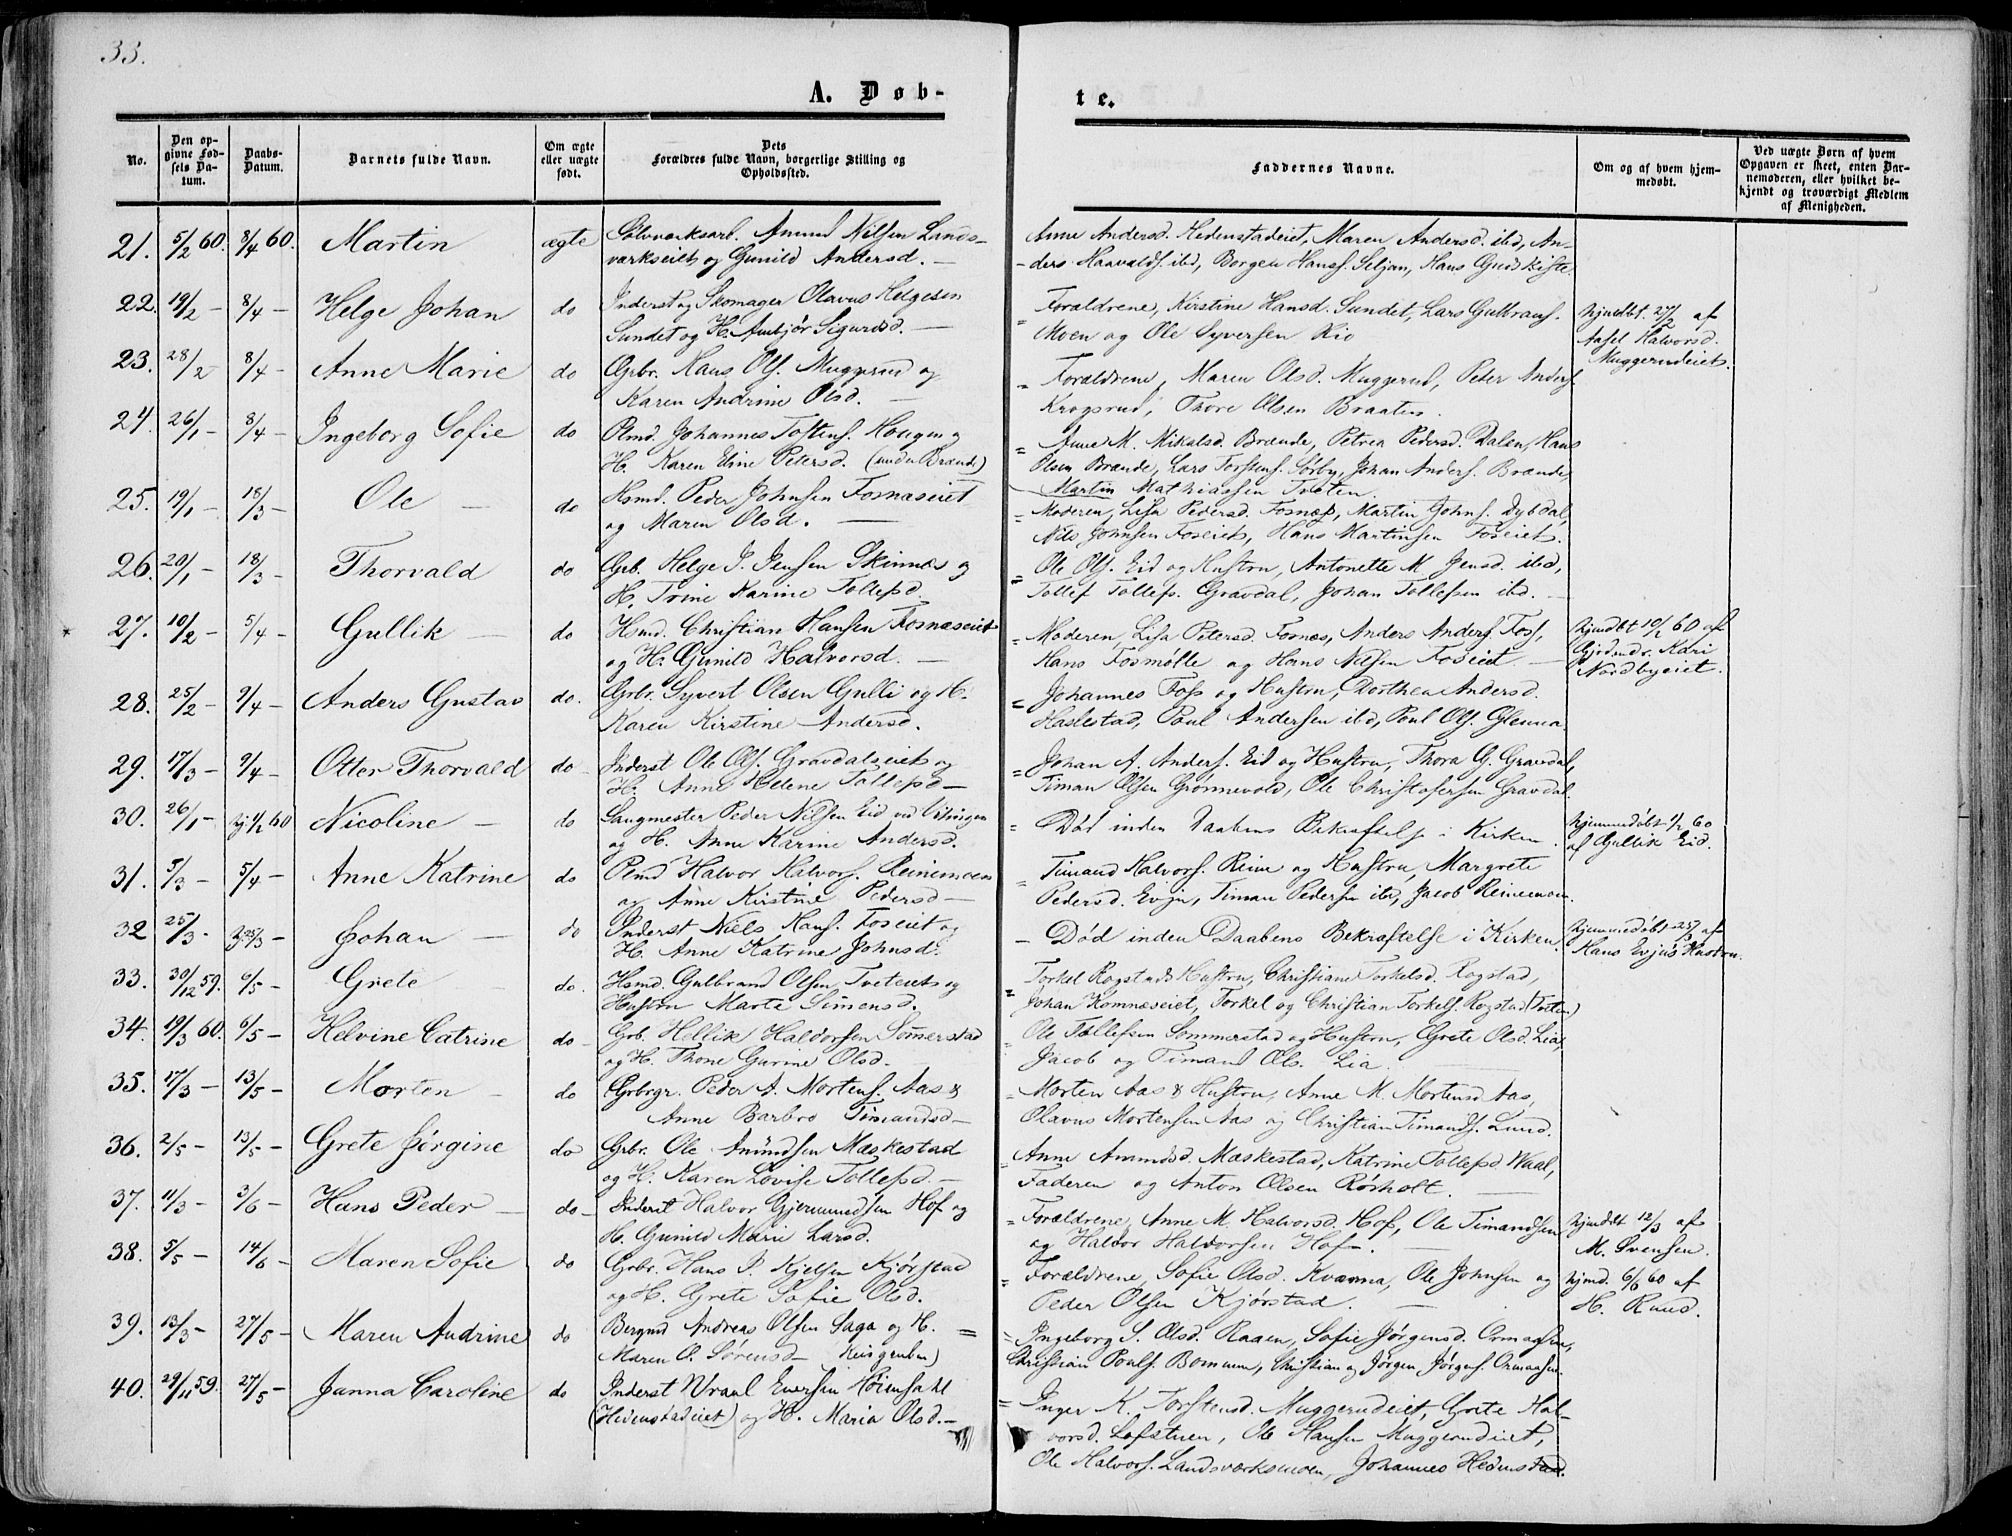 33.
A. Døb-
te.
No.
Den opgivne Fødsels Datum.
Daabs-Datum.
Barnets fulde Navn.
Om ægte eller uægte født.
Dets Forældres fulde Navn, borgerlige Stilling og Opholdssted.
Faddernes Navne.
Om og af hvem hjemmedøbt.
Ved uægte Børn af hvem Opgaven er skeet, enten Barnemoderen, eller hvilket bekjendt og troværdigt Medlem af Menigheden.
21. 5/2 60. 8/4 60. Martin ægte Sølvværksarb. Amund Nilsen Lands-
værkseiet og Gunild Andersd. —
Anne Andersd. Hedenstadeiet, Maren Andersd. ibd, An-
ders Haavalds. ibd, Borger Hanss. Seljan, Hans Gud. Kiste.
22. 19/2 — 8/4 — Helge Johan do Inderst og Skomager Olavus Helgesen
Sundet og H. Ambjør Sigurdsd. —
= Forældrene, Kirstine Hansd. Sundet, Lars Gulbrans.
Moen og Ole Syversen Lio
hjmdbt. 27/2 af
Aasel Halvorsd.
Muggerudeiet.
23. 28/2 8/4 — Anne Marie do Grbr. Hans Ols. Muggerud og
Karen Andrine Olsd. —
= Forældrene, Maren Olsd. Muggerud, Peter Anders.
Krogsrud, Thore Olsen Braaten.
24. 26/1 — 8/4 — Ingeborg Sofie do Plmd. Johannes Tostens. Hougen og
H. Karen Eline Petersd. (under Brænde)
= Anne M. Mikalsd. Brænde, Petrea Pedersd. Dalen, Hans
Olsen Brænde, Lars Torstens. Sørby, Johan Anders. Brænde,
Martin Mathiassen Tveten.
25. 19/1 — 18/3 — Ole — do Hsmd. Peder Johnsen Fosnæseiet
og Maren Olsd. —
= Moderen, Lisa Pedersd. Fosnæs, Martin Johns. Dybdal,
Nils Johnsen Foseiet, Hans Martinsen Foseiet.
26. 20/1 — 18/3 — Thorvald do Grb. Helge J. Jensen Skinnes og
H. Trine Karine Tollefsd.
= Ole Ols. Eid og Hustru, Antonette M. Jensd. ibd,
Tollef Tollefs. Gravdal, Johan Tollefsen ibd. —
27. 10/2 — 5/4 — Gullik — do Hsmd. Christian Hansen Fosnæseiet
og H. Gunild Halvorsd. —
= Moderen, Lisa Petersd. Fosnæs, Anders Anders. Foss,
Hans Fosmølle og Hans Nilsen Foseiet —
hjmdbt 10/2 60 af
Gjordmdr. Kari
Nordbyeiet.
28. 25/2 — 9/4 — Anders Gustav do. Grbr. Syvert Olsen Gulli og H.
Karen Kirstine Andersd.
= Johannes Foss og Hustru, Dorthea Andersd.
Haslestad, Poul Andersen ibd, Poul Ols. Glenna.
29. 17/3 — 9/4 — Otter Thorvald do Inderst Ole Ols. Gravdalseiet og
H. Anne Helene Tollefsd —
= Johan A. Anders. Eid og Hustru, Thora G. Gravdal,
Timan Olsen Grønnevold, Ole Christofersen Gravdal.
30. 26/1 — hj 1/2 60 Nicoline — do Saugmester Peder Nilsen Eid
og H. Anne Karine Andersd.
= Død inden Daabens Bekræftelse i Kirken.
hjemmedøbt 1/2 60
af Gullik Eid.
31. 5/3 — 5/4 — Anne Katrine do Plmd Halvor Halvors. Reinemoen
og Anne Kirstine Pedersd —
= Timand Halvors. Reine og Hustru, Margrete
Pedersd. Evju, Timan Pedersen ibd, Jacob Reinemoen.
32 25/3 - hj. 25/3 — Johan — do Inderst Niels Hans. Foseiet og
H. Anne Katrine Johnsd.
— Død inden Daabens Bekræftelse i Kirken.
hjemmedøbt 25/3 af
Hans Evjus Hustru.
33. 30/12 59. 6/5 — Grete — do. Hsmd. Gulbrand Olsen Tveteiet og
Hustru Marte Simensd.
= Torkel Rogstads Hustru, Christiane Torkelsd. Rogstad,
Johan Komnæseiet, Torkel og Christian Torkels. Rogstad (Tveten)
34. 19/3 60. 6/5 — Helvine Catrine do — Grb. Hellik Haldorsen Somerstad
og H. Thone Gurine Olsd.
= Ole Tollefsen Sommerstad og Hustru, Grete Olsd. Lia,
Jacob og Timand Ols. Lia.
35. 17/3 — 13/5 — Morten — do Grbrgr. Peder A. Mortens. Aas &
Anne Barbro Timandsd —
= Morten Aas & Hustru, Anne M. Mortensd Aas,
Olavus Mortensen Aas og Christian Timands. Lund.
36. 2/5 — 13/5 — Grete Jørgine do Grbr. Ole Amundsen Mæskestad
og H. Karen Lovise Tollefsd. —
= Anne Amundsd. Mæskestad, Katrine Tollefsd. Waal,
Faderen og Anton Olsen Rørholt. —
37. 11/3 — 3/6 — Hans Peder — do — Inderst Halvor Gjermundsen Hof og
H. Gunild Marie Larsd.
= Forældrene, Anne M. Halvorsd. Hof, Ole Timandsen
og Halvor Haldorsen Hof —.
hjmdbt 12/3 af
M. Svensen.
38. 5/5 — 14/6 — Maren Sofie do Grbr. Hans P. Kjelsen Kjørstad
og H. Grete Sofie Olsd.
= Forældrene, Sofie Olsd. Kværna, Ole Johnsen og
Peder Olsen Kjørstad. —
hjmd. 6/6 60 af
H. Ruud.
39. 13/3 — 27/5 — Maren Andrine do Bergmd Andreas Olsen Saga og H. =
Maren O. Sørensd —
= Ingeborg S. Olsd. Raaen, Sofie Jørgensd. Ormaasen,
Christian Pouls. Bommen, Christian og Jørgen Jørgens. Ormaasen.
40. 29/11 59. 27/5 — Janna Caroline do Inderst Wraal Eversen Høiensahl
(Hedenstadeiet) og H. Maria Olsd. —
= Inger K. Torstensd. Muggerudeiet, Grete Hal-
vorsd. Lofstuen, Ole Hansen Muggerudeiet,
Ole Halvors. Landsværksmoen, Johannes Hedenstad.